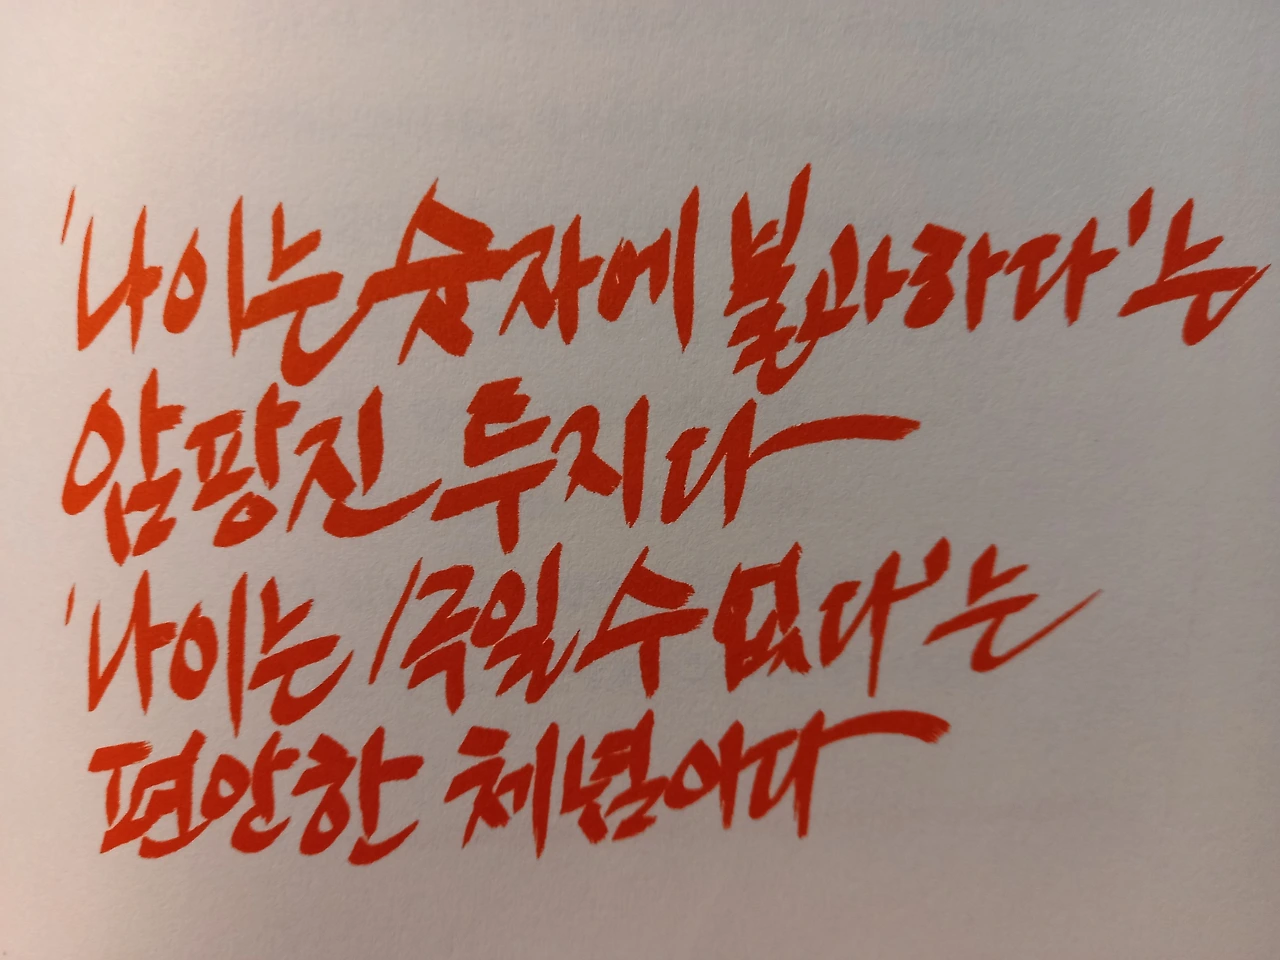 '나이는 숫자에 불과하다'는
암팡진 투지다
'나이는 속일 수 없다'는
편안한 체념이다